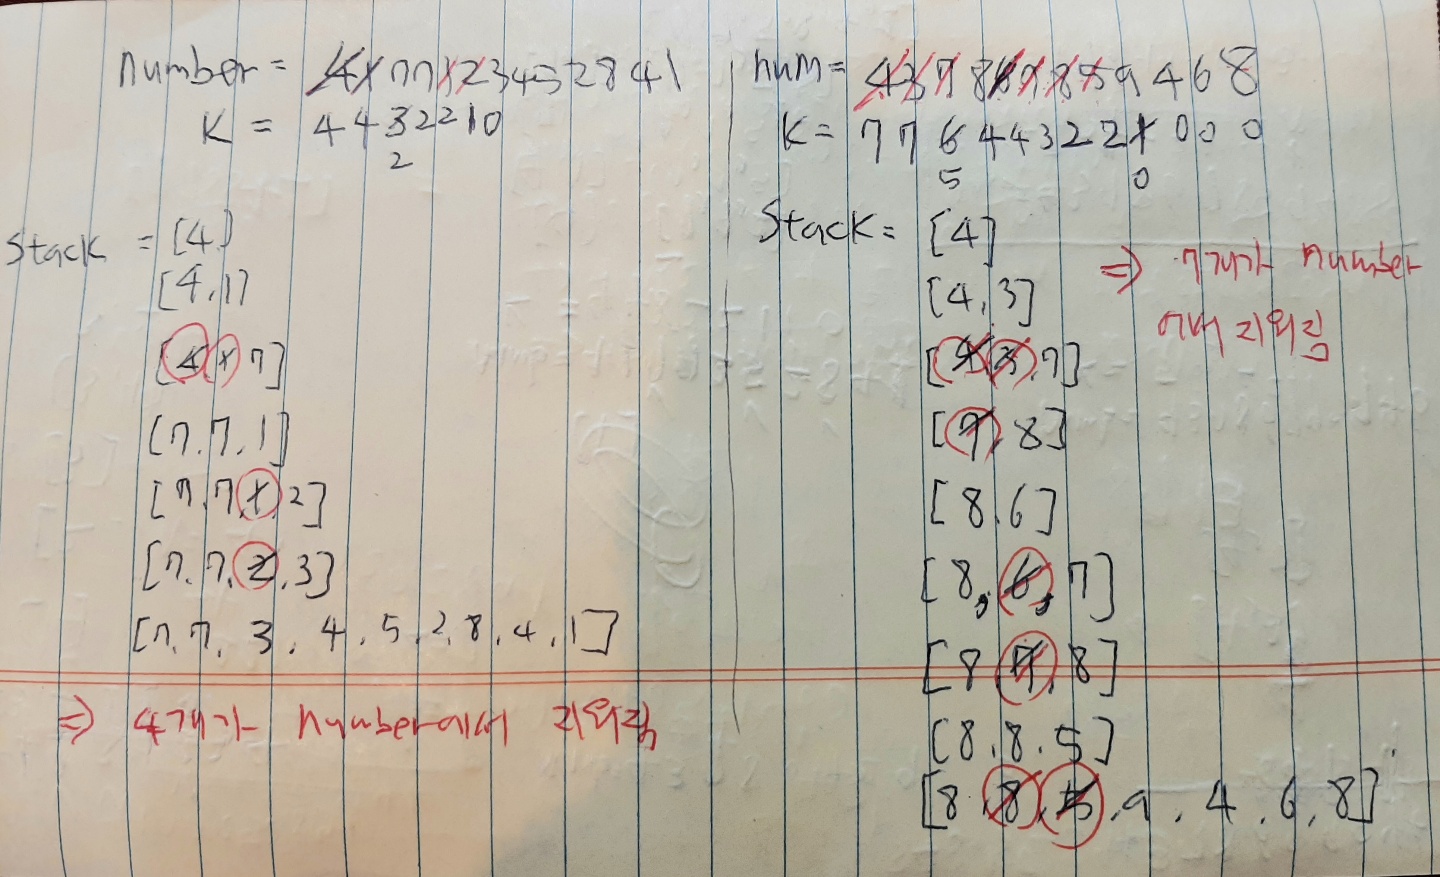 number = 4177123452841
K = 4432210
2
Stack = [4]
[4, 1]
[4, 1, 7]
[7, 7, 1]
[7, 7, 1, 2]
[7, 7, 2, 3]
[7, 7, 3, 4, 5, 2, 8, 4, 1]
⇒ 4개가 number에서 지워짐
num = 437867859468
K = 776443221000
5 0
Stack = [4]
[4, 3]
[4, 3, 7]
[7, 8]
[8, 6]
[8, 6, 7]
[8, 7, 8]
[8, 8, 5]
[8, 8, 5, 9, 4, 6, 8]
⇒ 7개가 number
에서 지워짐